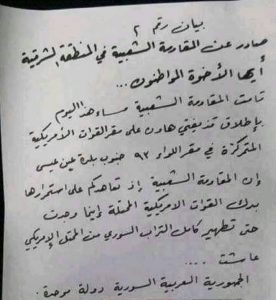 بيان رقم ٢
صادر عن المقاومة الشعبية في المنطقة الشرقية
أيها الأخوة المواطنون...
قامت المقاومة الشعبية مساء هذا اليوم
بإطلاق قذيفتي هاون على مقر القوات الأمريكية
المتمركزة في مقر اللواء ٩٣ جنوب بلدة عين عيسى
إن المقاومة الشعبية إذ تعاهدكم على استمرارها
بدك القوات الامريكية المحتلة أينما وجدت
حتى تطهير كامل التراب السوري من المحتل الأمريكي
عاشت ....
الجمهورية العربية السورية دولة موحدة .